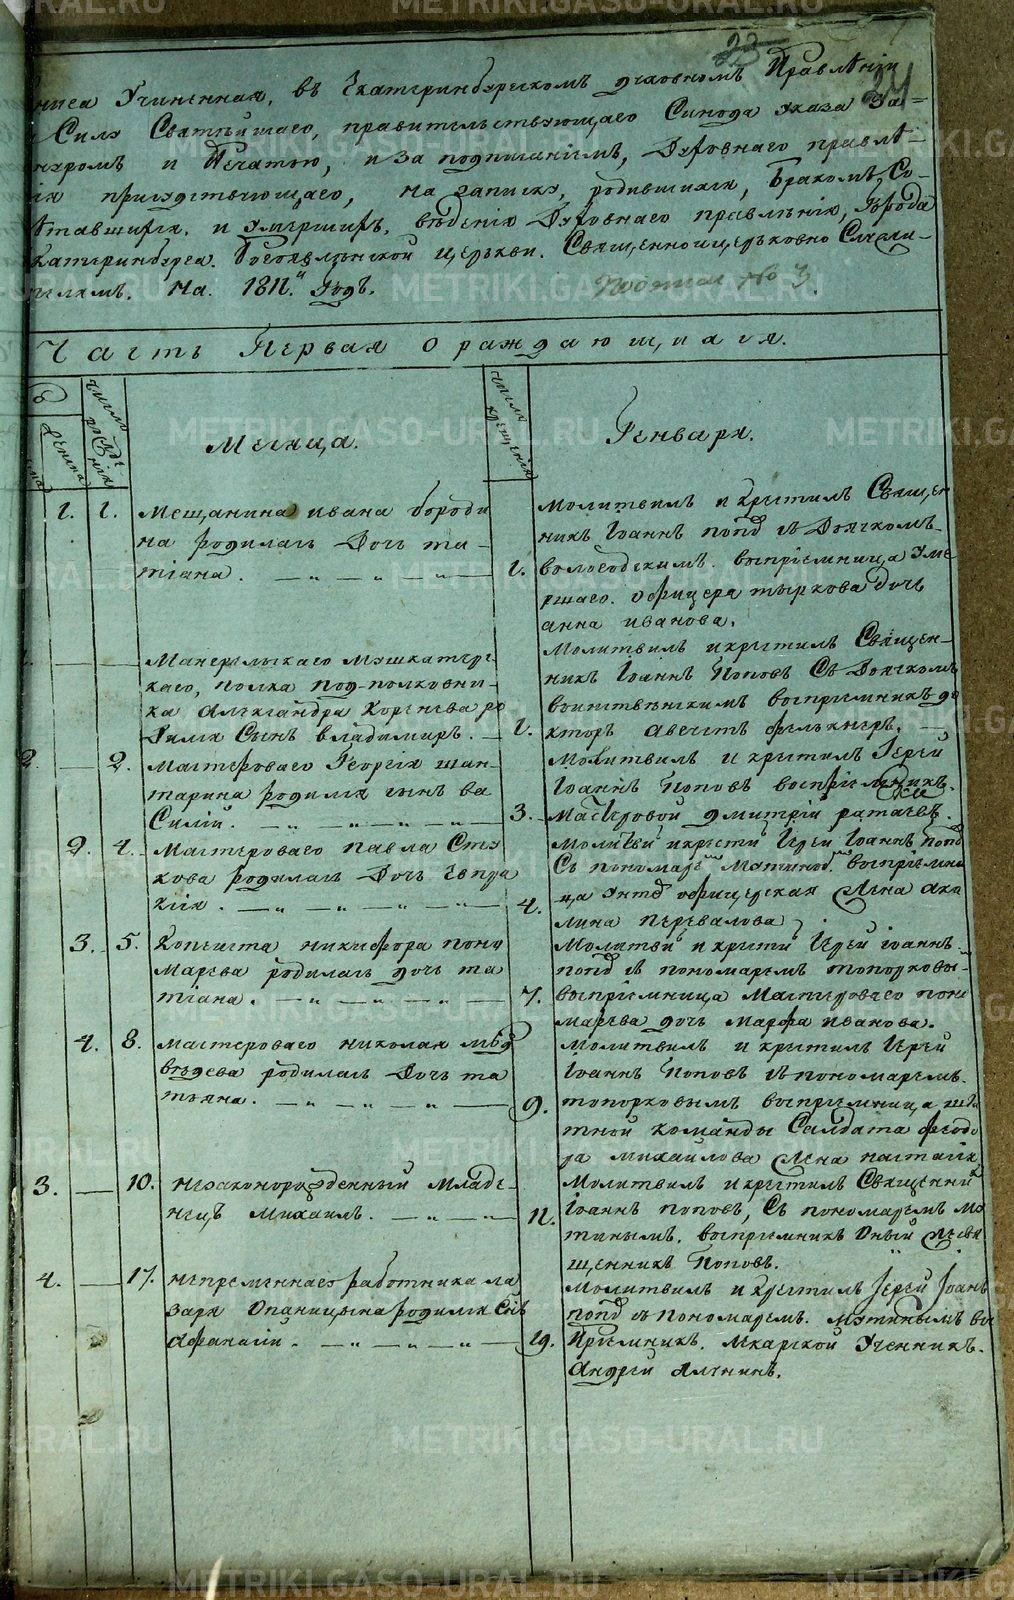 METRIKI.GASO-URAL.RU
23
24
книга Учиненная, въ Екатеринбургскомъ духовномъ Правлѣніи
Силу Святѣйшаго, правительствующаго Синода указа За=
и Печатою, и за подписанiемъ, Духовнаго правлѣ=
присудствующаго, на записку, родившихся, Бракомъ Со=
и умершихъ, вѣденiя Духовнаго правлѣнiя, Города
Екатеринбурга. Богоявлѣнской церькви. Священноицерьковно Служи=
телямъ. на. 1811.й Годъ.
Подъ № 3.
Часть Первая о раждающихся.
число рождѣнiя
Месяца.
число крещенiя
Генваря.
1. 1. Мещанина ивана бороди
на родилась Дочь та=
тiана.
1.
молитвилъ и крестилъ Священ
никъ Iоаннъ попо́въ съ Дьячкомъ=
вологодскимъ. воспрiемница уме
ршаго. офицера тыркова дочь
анна иванова.
1. Мушкатерс=
каго, полка Под-полковни=
ка Александра Коренева ро
дился Сынъ владимиръ.
1.
Молитвилъ и крестилъ Священ=
никъ Iоаннъ Поповъ Съ Дьячкомъ
воспрiемникъ до
кторъ
2. 2. Мастероваго Георгiя шан=
тарина родился сынъ ва
Силiй.
3.
Молитвилъ и крестилъ Iерей
Iоаннъ Поповъ воспрiемникъ.
Мастеровой дмитрiй
2. 4. Мастероваго павла
кова родилась Дочь Евпра
кiя.
4.
Молитви и крести Iерей Iоаннъ Поп
Съ пономаре воспрiемни
ца офицерская жена аку
лина перевалова
3. 5. Копеиста никифора поно
марева родилась дочь та
тiана.
7.
Молитви и крести Iерей iоаннъ
поп съ пономаремъ топорковы=
воспрiемница Мастероваго поно
марева дочь марфа иванова.
4. 8. мастероваго николая мѣд
вѣдева родилась Дочь та
тьяна.
9.
молитвилъ и крестилъ Iерей
Iоаннъ Поповъ съ пономаремъ.
топорковымъ воспрiемница шта
тной команды Салдата федо
ра михаилова жена настасiя
3. 10. незаконорожденный младе=
нецъ михаилъ.
12.
молитвилъ и крестилъ Священни
Iоаннъ поповъ, Съ пономаремъ
воспрiемникъ Оный же свя
щенникъ Поповъ.
4. 17. непременнаго работника ла
заря Опаницына родился Снъ
афанасiй.
19.
молитвилъ и крестилъ Iерей Iоанъ
поп съ пономаремъ. вос
Прiемникъ. лекарской Ученникъ.
Андрей